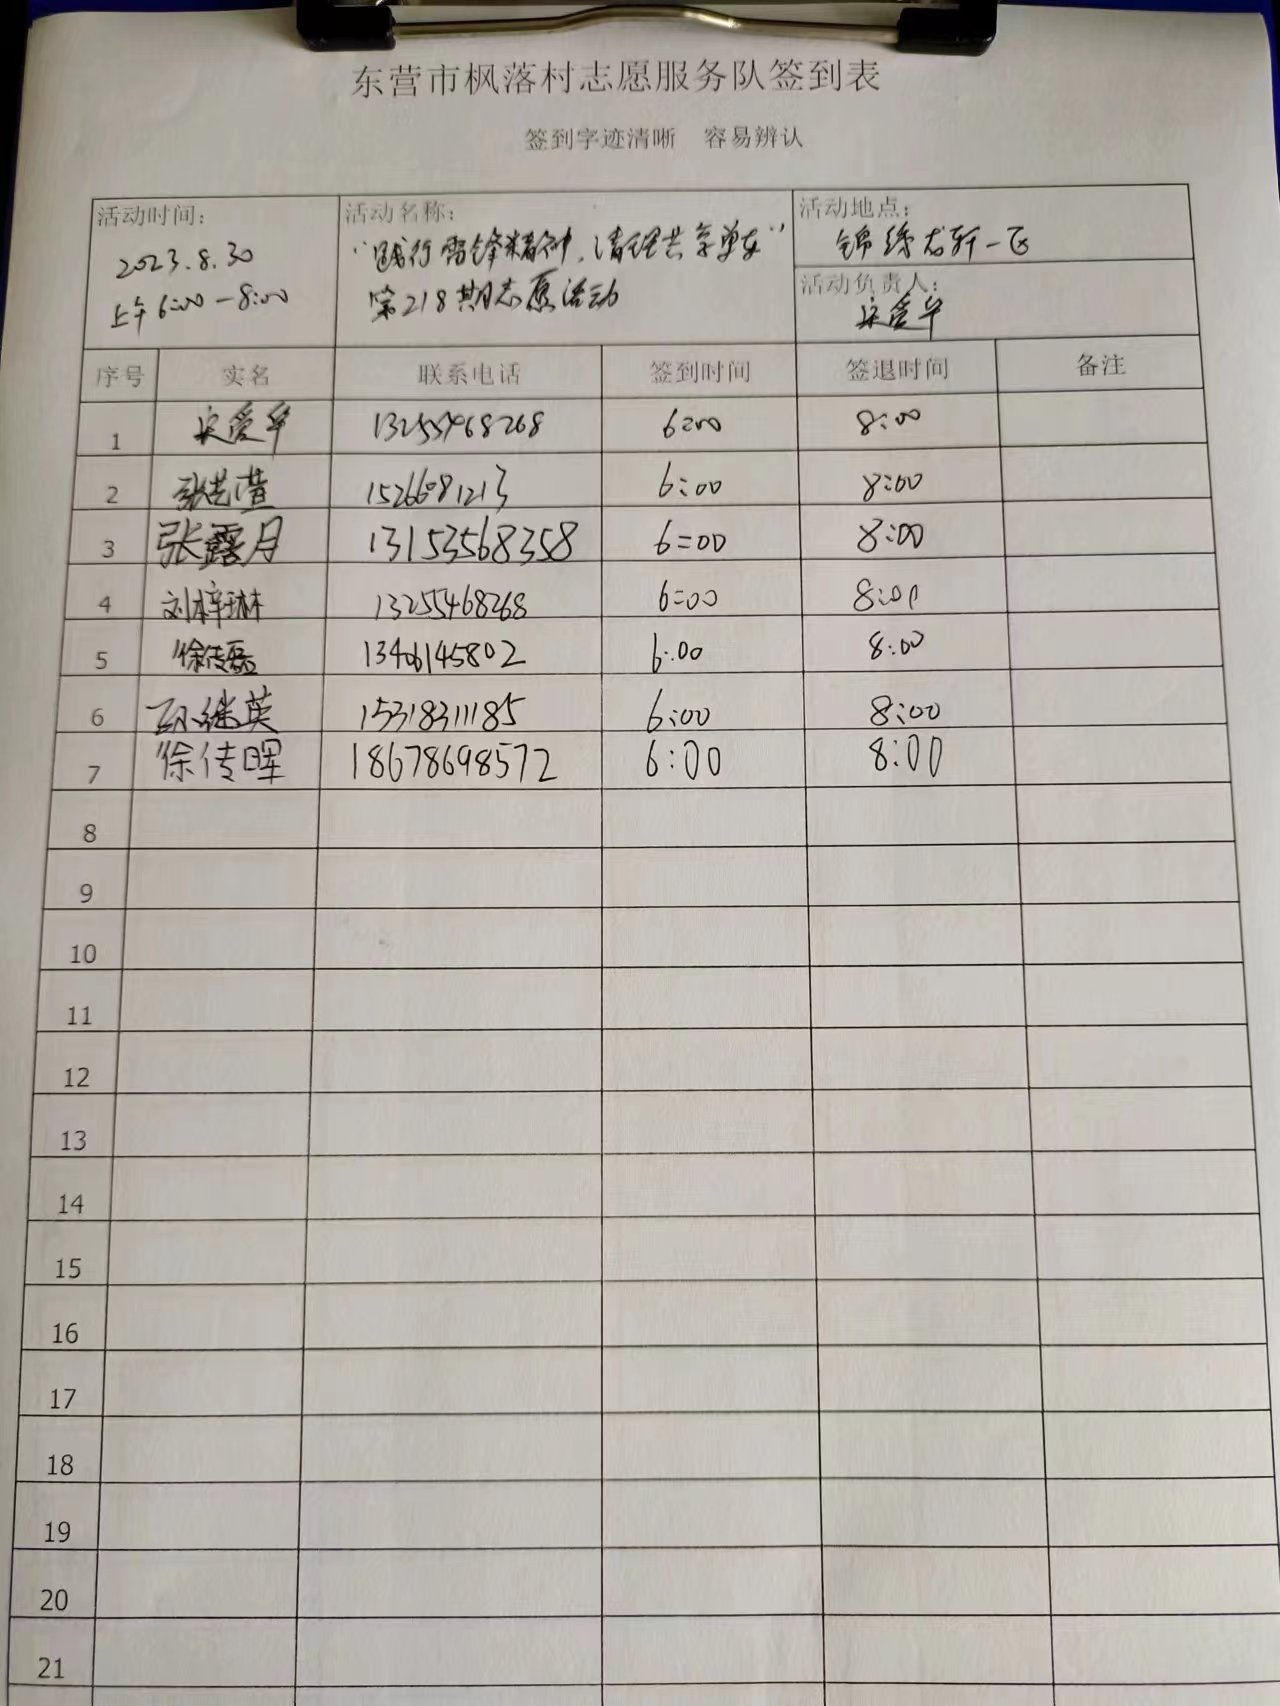 东营市枫落村志愿服务队签到表
签到字迹清晰 容易辨认
活动时间:
2023.8.30
上午6:00-8:00
活动名称:
"践行雷锋精神,清理共享单车"
第218期志愿活动
活动地点:
锦绣龙轩一飞
活动负责人:
宋爱华
序号 实名 联系电话 签到时间 签退时间 备注
1 宋爱华 13255468268 6:00 8:00
2 15266081213 6:00 8:00
3 张露月 13153568358 6:00 8:00
4 刘梓琳 13255468268 6:00 8:00
5 徐传磊 13406145802 6:00 8:00
6 孙继英 15318311185 6:00 8:00
7 徐传晖 18678698572 6:00 8:00
8
9
10
11
12
13
14
15
16
17
18
19
20
21